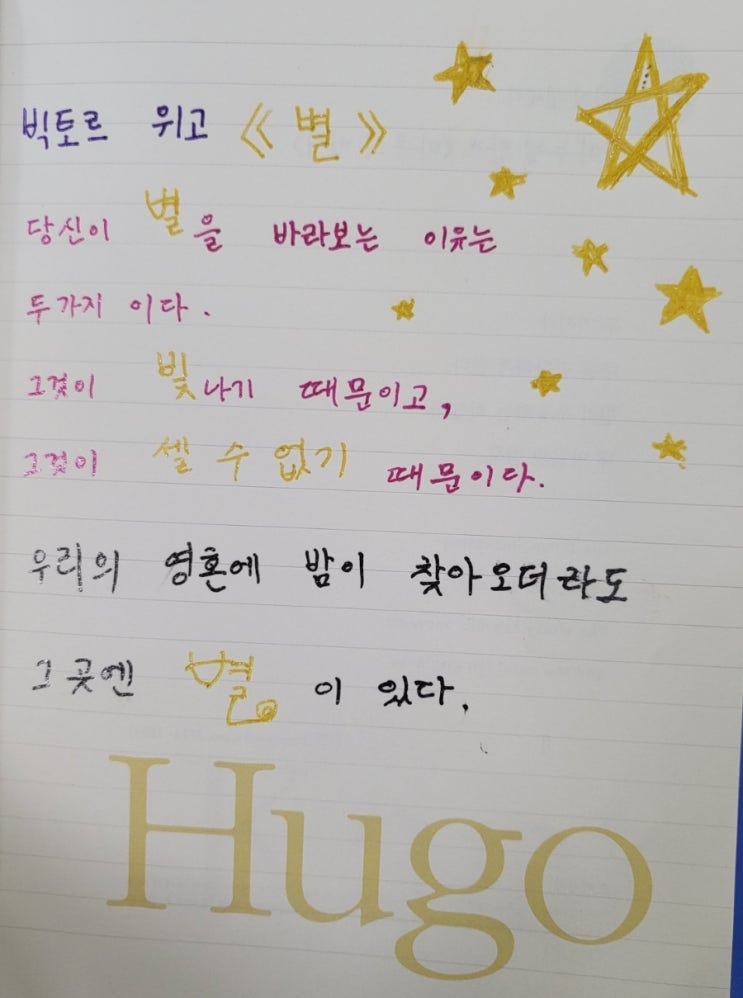 빅토르 위고 《별》
당신이 별을 바라보는 이유는
두가지 이다.
그것이 빛나기 때문이고,
그것이 셀 수 없기 때문이다.
우리의 영혼에 밤이 찾아오더라도
그 곳엔 별이 있다.
Hugo